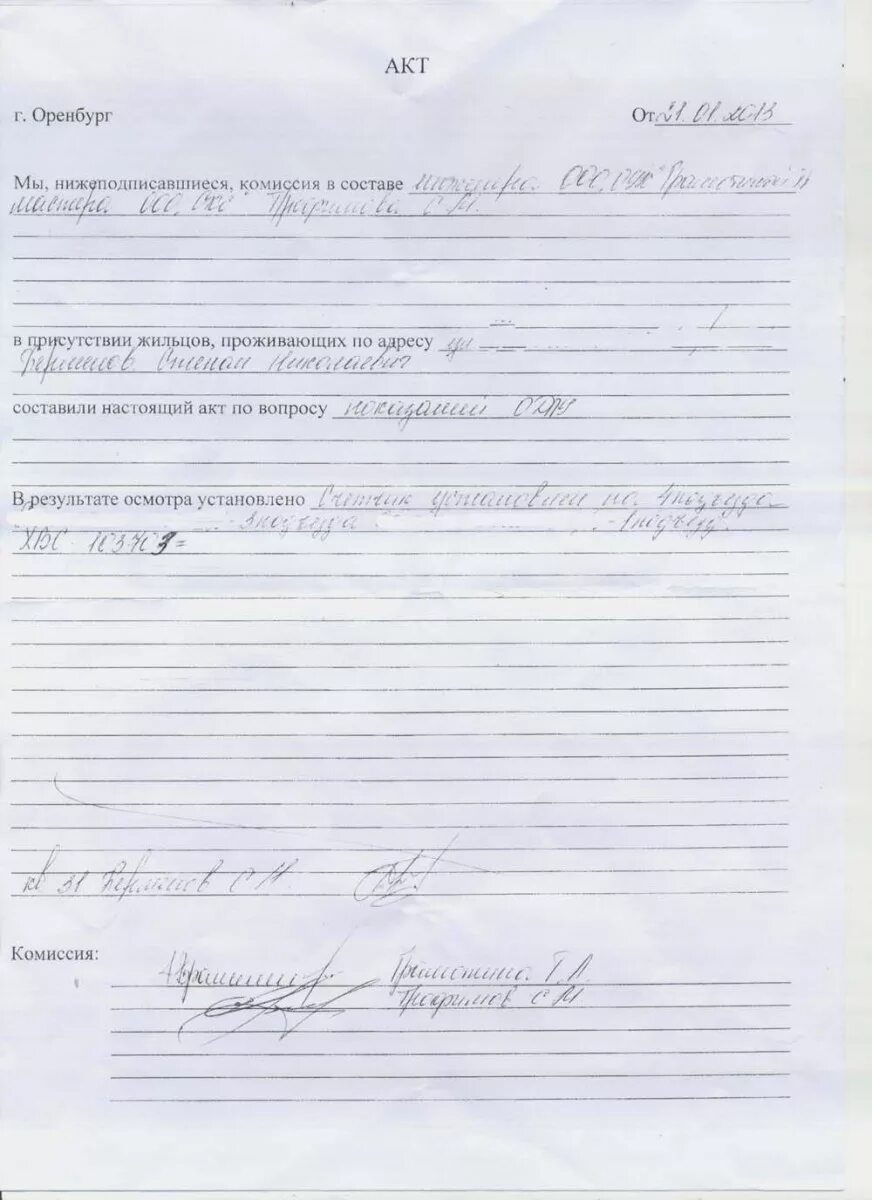 АКТ
г. Оренбург От 21.01.2013
Мы, нижеподписавшиеся, комиссия в составе инженера ООО
мастера ООО Трофимова С М.
в присутствии жильцов, проживающих по адресу ул
Степан Николаевич
составили настоящий акт по вопросу показаний ОДПУ
В результате осмотра установлено Счетчик установлен на 4 подъезда
- 3 подъезда - 1 подъезд
ХВС 103703=
кв 31 С Н.
Комиссия:
Грамотина Т Л.
Трофимов С М